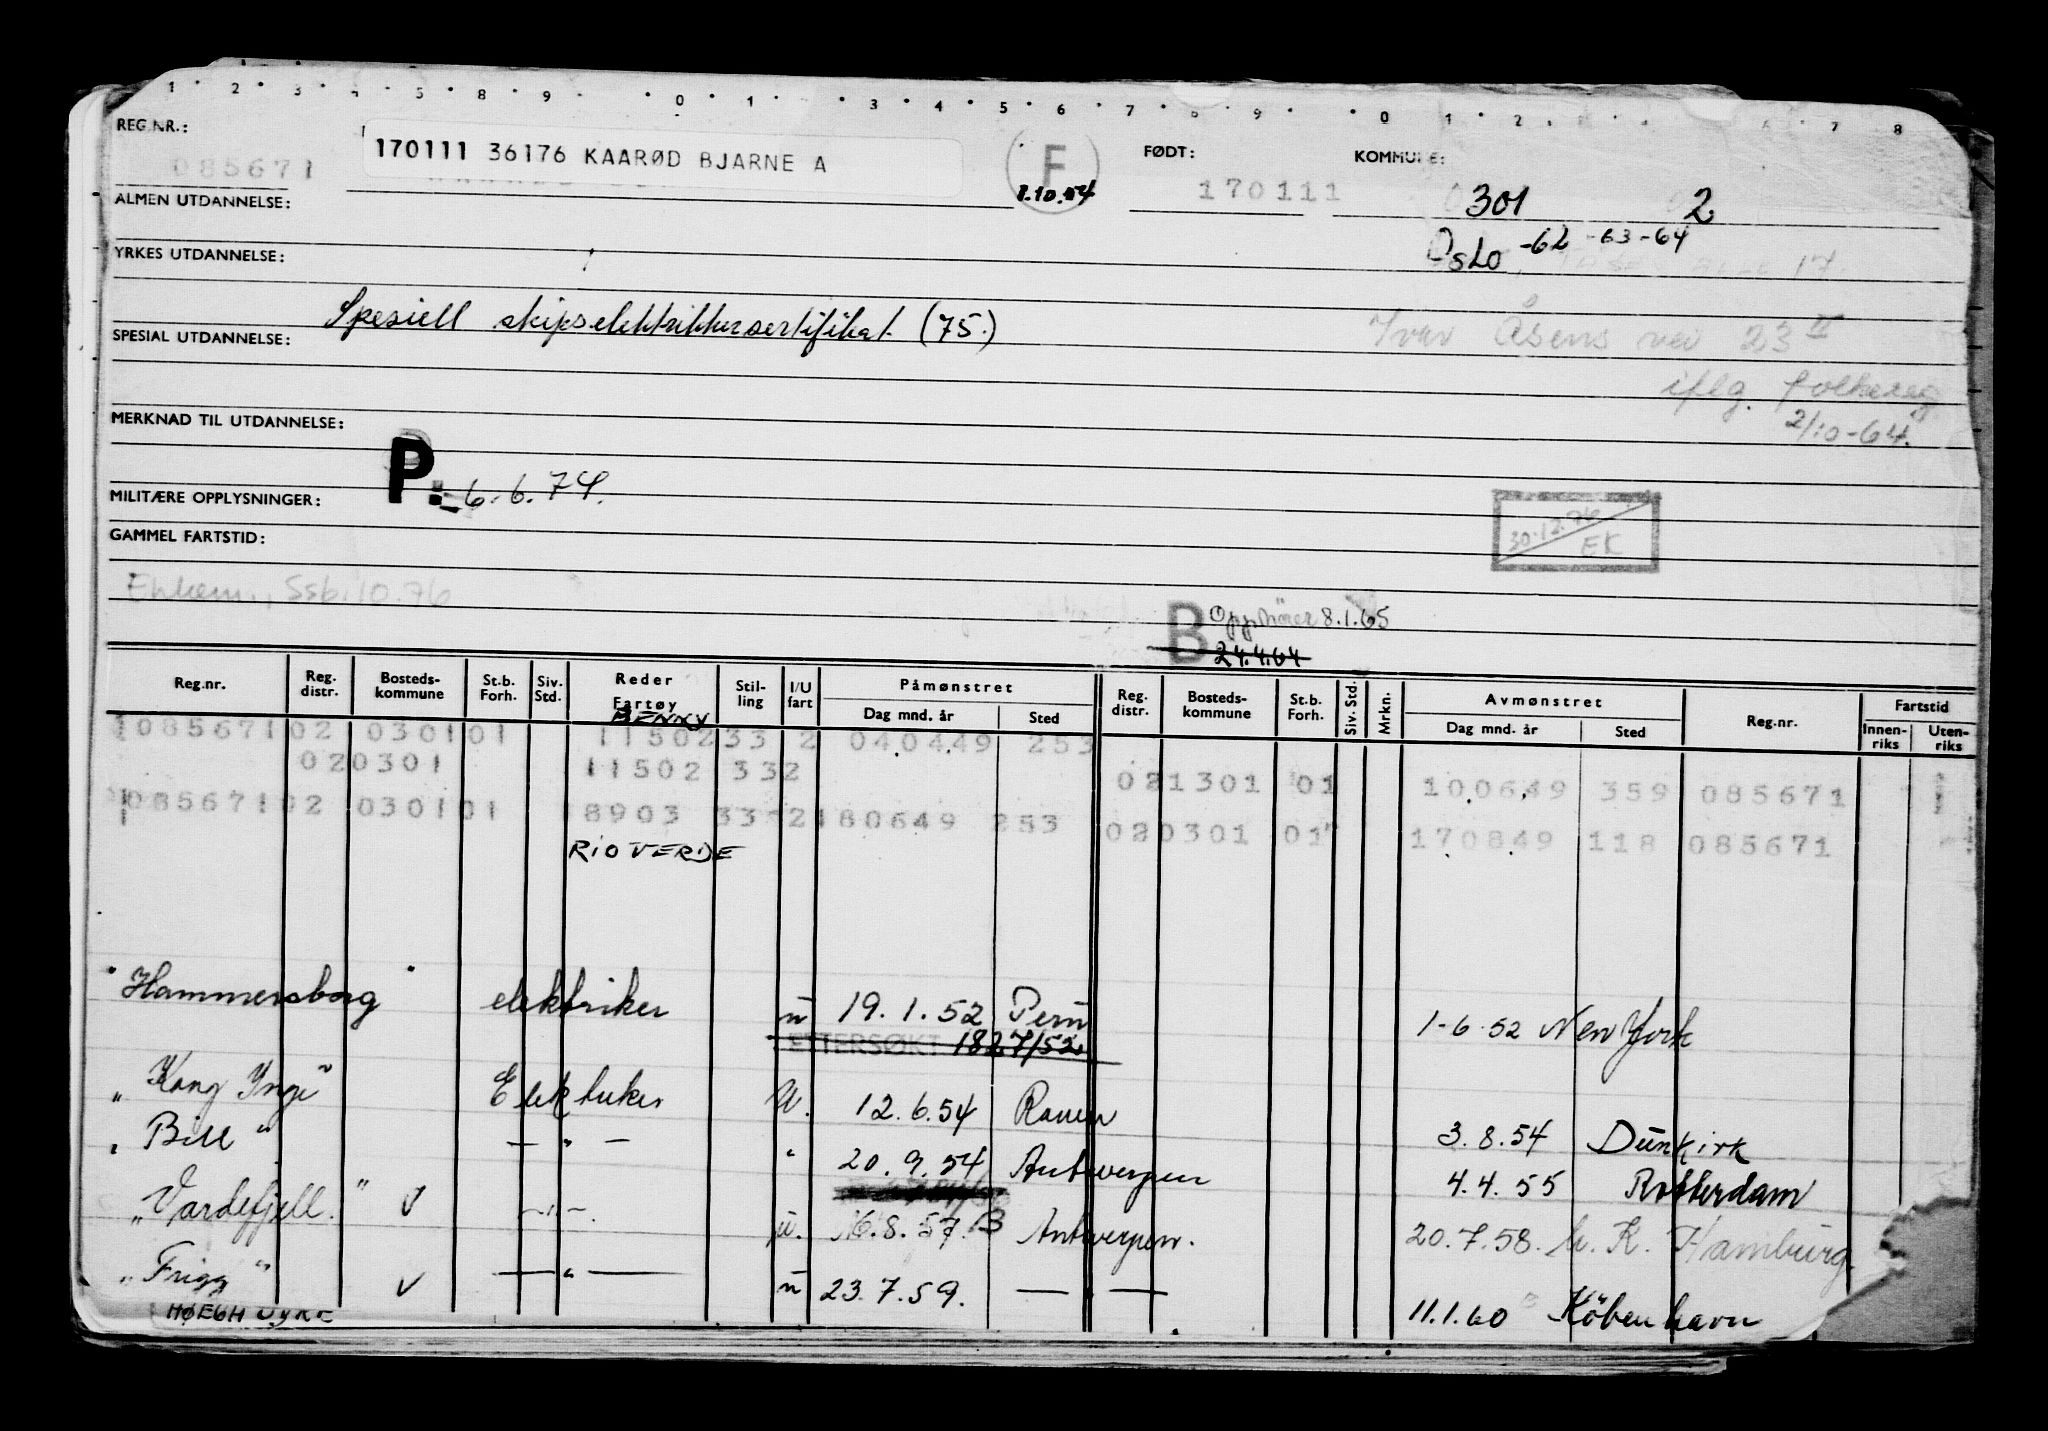 1 2 3 4 5 8 9 0 1 3 4 5 6 7 8 9 0 1 2 7 8
REG.NR.: 085671
170111 36176 KAARØD BJARNE A
F 1.10.54
FØDT: 170111
KOMMUNE: 301 2
ALMEN UTDANNELSE:
Oslo -62 -63 -64
YRKES UTDANNELSE:
Spesiell skipselektrikersertifikat (75.)
SPESIAL UTDANNELSE:
Ivar Åsens vei 23 II
iflg. folkereg
2/10-64.
MERKNAD TIL UTDANNELSE:
P: 6.6.74.
MILITÆRE OPPLYSNINGER:
30.12.76 EK
GAMMEL FARTSTID:
Ssb. 10.76
B 8.1.65
24.4.64
Reg.nr. Reg. distr. Bosteds-kommune St.b. Forh. Siv. Std. Reder Fartøy Stil-ling I/U fart Påmønstret Dag mnd. år Sted Reg. distr. Bosteds-kommune St.b. Forh. Siv. Std. Mrkn. Avmønstret Dag mnd. år Sted Reg.nr. Fartstid Innen-riks Uten-riks
BENNY
085671 02 0301 01 11502 33 2 040449 253
020301 11502 332 021301 01 100649 359 085671
085671 02 0301 01 8903 33 2 180649 253 020301 01 170849 118 085671
RIO VERDE
"Hammersborg" elektriker u 19.1.52 Peru 1-6.52 New York
ETTERSØKT 18 7/52
"Kong Inge" Elektriker U. 12.6.54 Rouen 3.8.54 Dünkirk
"Bill" — " — " 20.9.54 Antwerpen 4.4.55 Rotterdam
"Vardefjell." V — " — u. 16.8.57. B Antwerpen. 20.7.58. h. K. Hamburg.
"Frigg" V — " — u 23.7.59. — " — 11.1.60 København
HØEGH DYKE